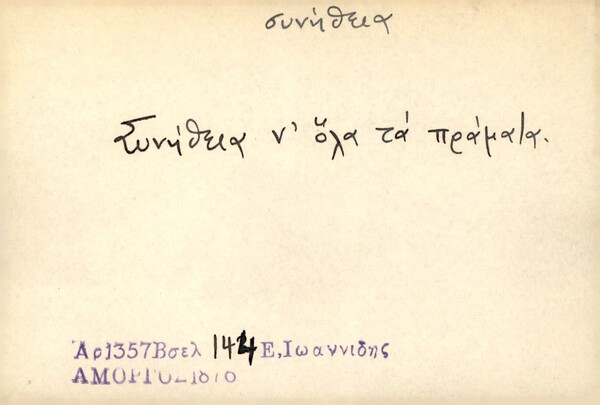 συνήθεια
Συνήθεια ν' ὅλα τά πράματα.
Ἀρ1357Βσελ 144 Ε,Ιωαννιδης
ΑΜΟΡΓΟΣ1876